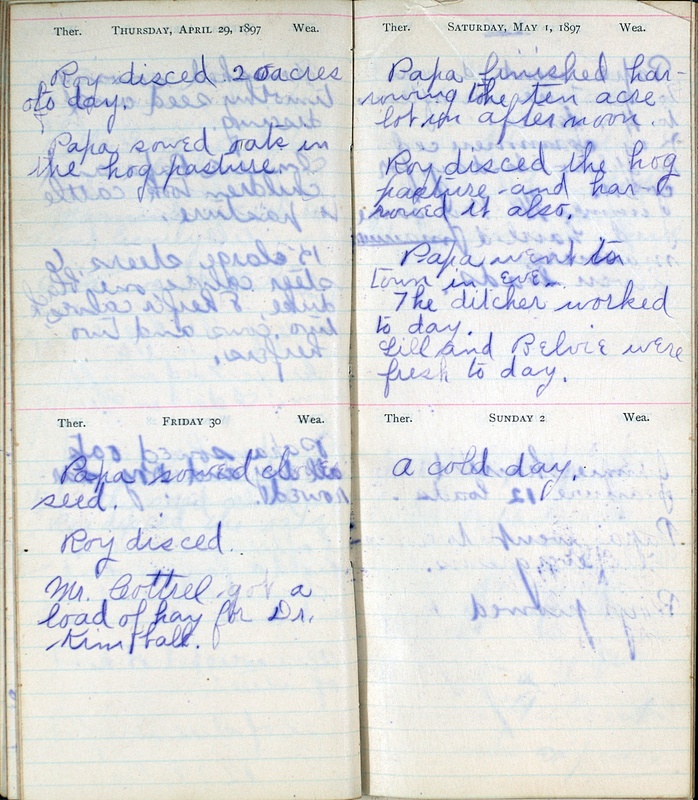 Ther. THURSDAY, APRIL 29, 1897 Wea.
Roy disced 20 acres
to day.
Papa sowed oats in
the hog pasture.
Ther. FRIDAY 30 Wea.
Papa sowed clover
seed.
Roy disced.
Mr. Cottrel got a
load of hay for Dr.
Kimball.
Ther. SATURDAY, MAY 1, 1897 Wea.
Papa finished har-
rowing the ten acre
lot in afternoon.
Roy disced the hog
pasture and har-
rowed it also.
Papa went to
town in eve.
The ditcher worked
to day.
Lill and Belvie were
fresh to day.
Ther. SUNDAY 2 Wea.
A cold day.